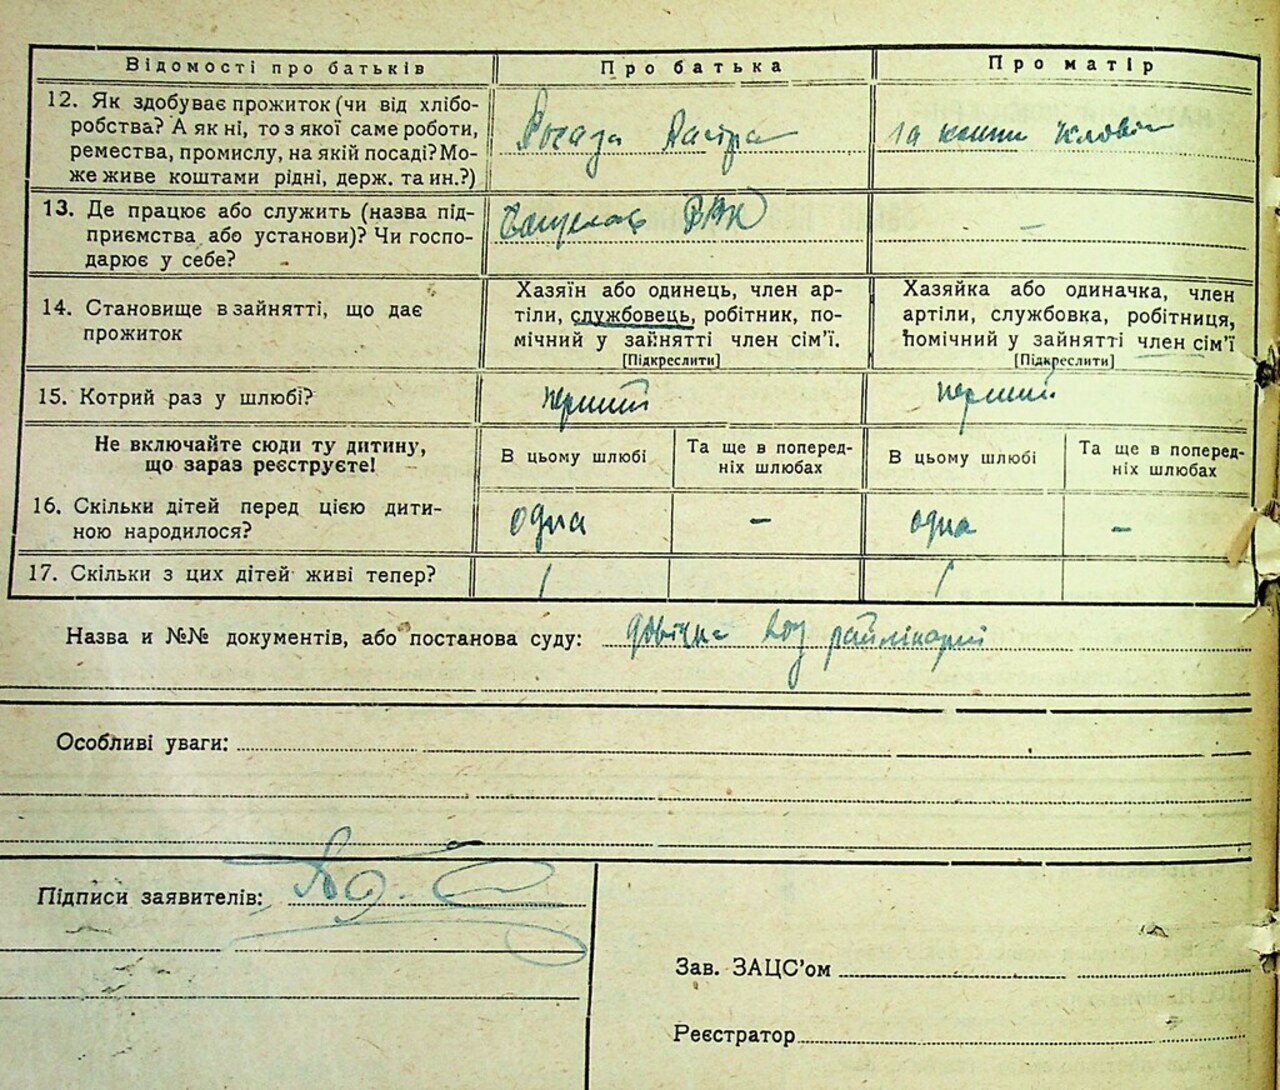 Відомості про батьків
Про батька
Про матір
12. Як здобуває прожиток (чи від хлібо-
робства? А як ні, то з якої саме роботи,
ремества, промислу, на якій посаді? Мо-
же живе коштами рідні, держ. та ин.?)
за кошти
13. Де працює або служить (назва під-
приємства або установи)? Чи госпо-
дарює у себе?
РВК
—
14. Становище в зайнятті, що дає
прожиток
Хазяїн або одинець, член ар-
тіли, службовець, робітник, по-
мічний у зайнятті член сім'ї.
[Підкреслити]
Хазяйка або одиначка, член
артіли, службовка, робітниця,
помічний у зайнятті член сім'ї
[Підкреслити]
15. Котрий раз у шлюбі?
перший
перший
Не включайте сюди ту дитину,
що зараз реєструєте!
В цьому шлюбі
Та ще в поперед-
ніх шлюбах
В цьому шлюбі
Та ще в поперед-
ніх шлюбах
16. Скільки дітей перед цією дити-
ною народилося?
одна
—
одна
—
17. Скільки з цих дітей живі тепер?
1
1
Назва и №№ документів, або постанова суду:
райлікарні
Особливі уваги:
Підписи заявителів:
Зав. ЗАЦС'ом
Реєстратор